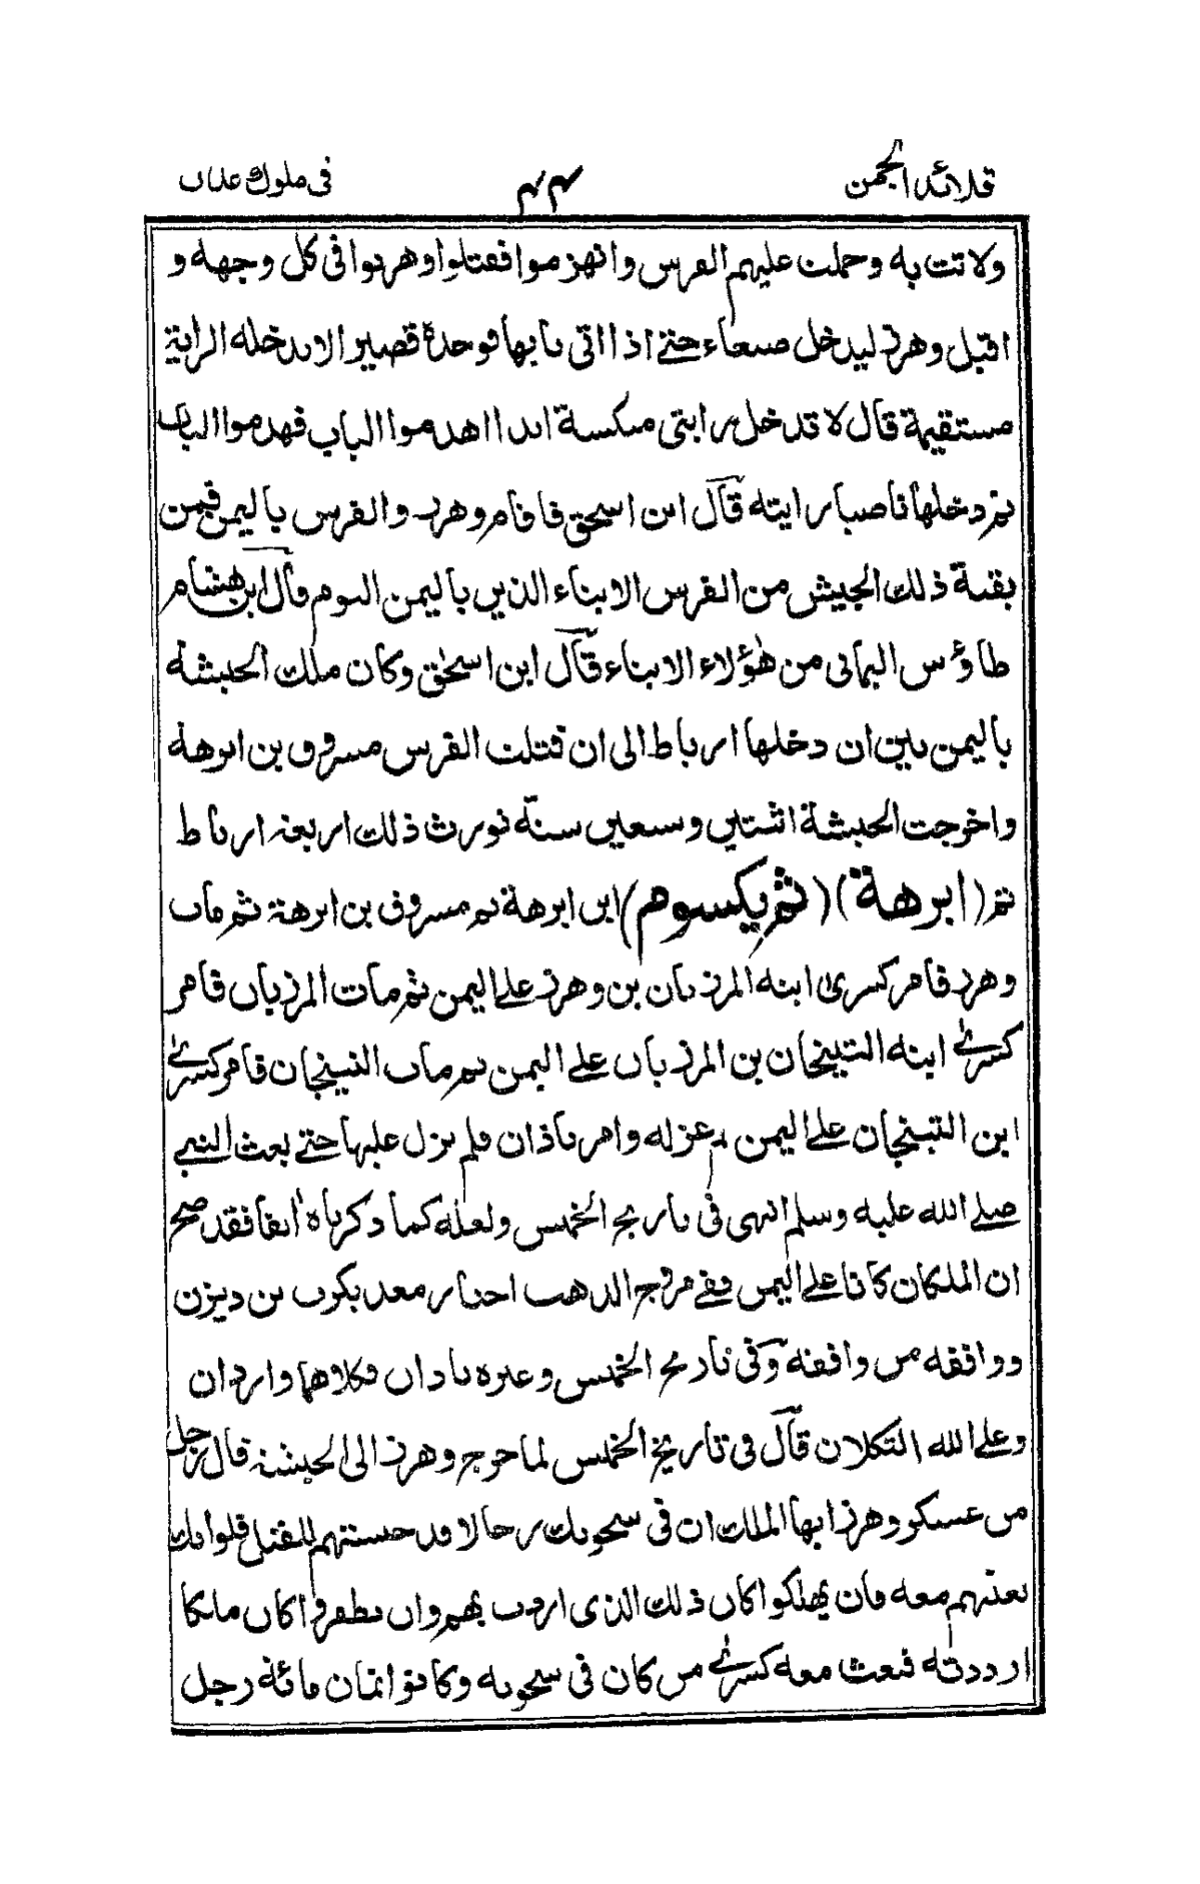 قلائد الجمن
٤٤
فى ملوك عدن
ولاثت به وحملت عليهم الفرس وانهزموا فقتلوا وهربوا فى كل وجهه و
اقبل وهرز ليدخل صنعاء حتے اذا اتى بابها فوحدة قصير الا ىدخله الراية
مستقيمة قال لا تدخل رايتى منكسة ابدا اهدموا الباب فهدموا الباب
ثم دخلها ناصبا رايته قال ابن اسحق فاقام وهرز والفرس باليمن فمن
بقية ذلك الجيش من الفرس الابناء الذين باليمن اليوم قال ابن هشام
طاؤس اليمانى من هٰؤلاء الابناء قال ابن اسحٰق وكان ملك الحبشة
باليمن بين ان دخلها ارباط الى ان قتلت الفرس مسروق بن ابرهة
واخرجت الحبشة اثنتين وسبعين سنة نورث ذلك اربعة ارباط
ثم (ابرهة) (ثم يكسوم) ابن ابرهة ثم مسروق بن ابرهة ثم مات
وهرز فامر كسرىٰ ابنه المرزبان بن وهرز علے اليمن ثم مات المرزبان فامر
كسرىٰ ابنه التينجان بن المرزبان علے اليمن ثم مات التينجان فامر كسرىٰ
ابن التينجان علے اليمن ثم عزله وامر باذان فلم يزل عليها حتے بعث النبے
صلے الله عليه وسلم انتهى فى تاريخ الخميس ولعله كما ذكرناه اٰنفا فقد صح
ان الملكان كانا علے اليمن ففے مروج الذهب اخبار معديكرب بن ذيزن
ووافقه من وافقه وفى تاريخ الخميس وغيره باذان فكلاهما واردان
وعلے الله التكلان قال فى تاريخ الخميس لما خرج وهرز الى الحبشة قال رجل
من عسكر وهرز ايها الملك ان فى سجونك رجالا قد حبستهم للقتل فلو انك
بعثتهم معه فان يهلكوا كان ذلك الذى اردت بهم وان ظفروا كان ملكا
ارددته فبعث معه كسرىٰ من كان فى سجونه وكانوا ثمان مائة رجل